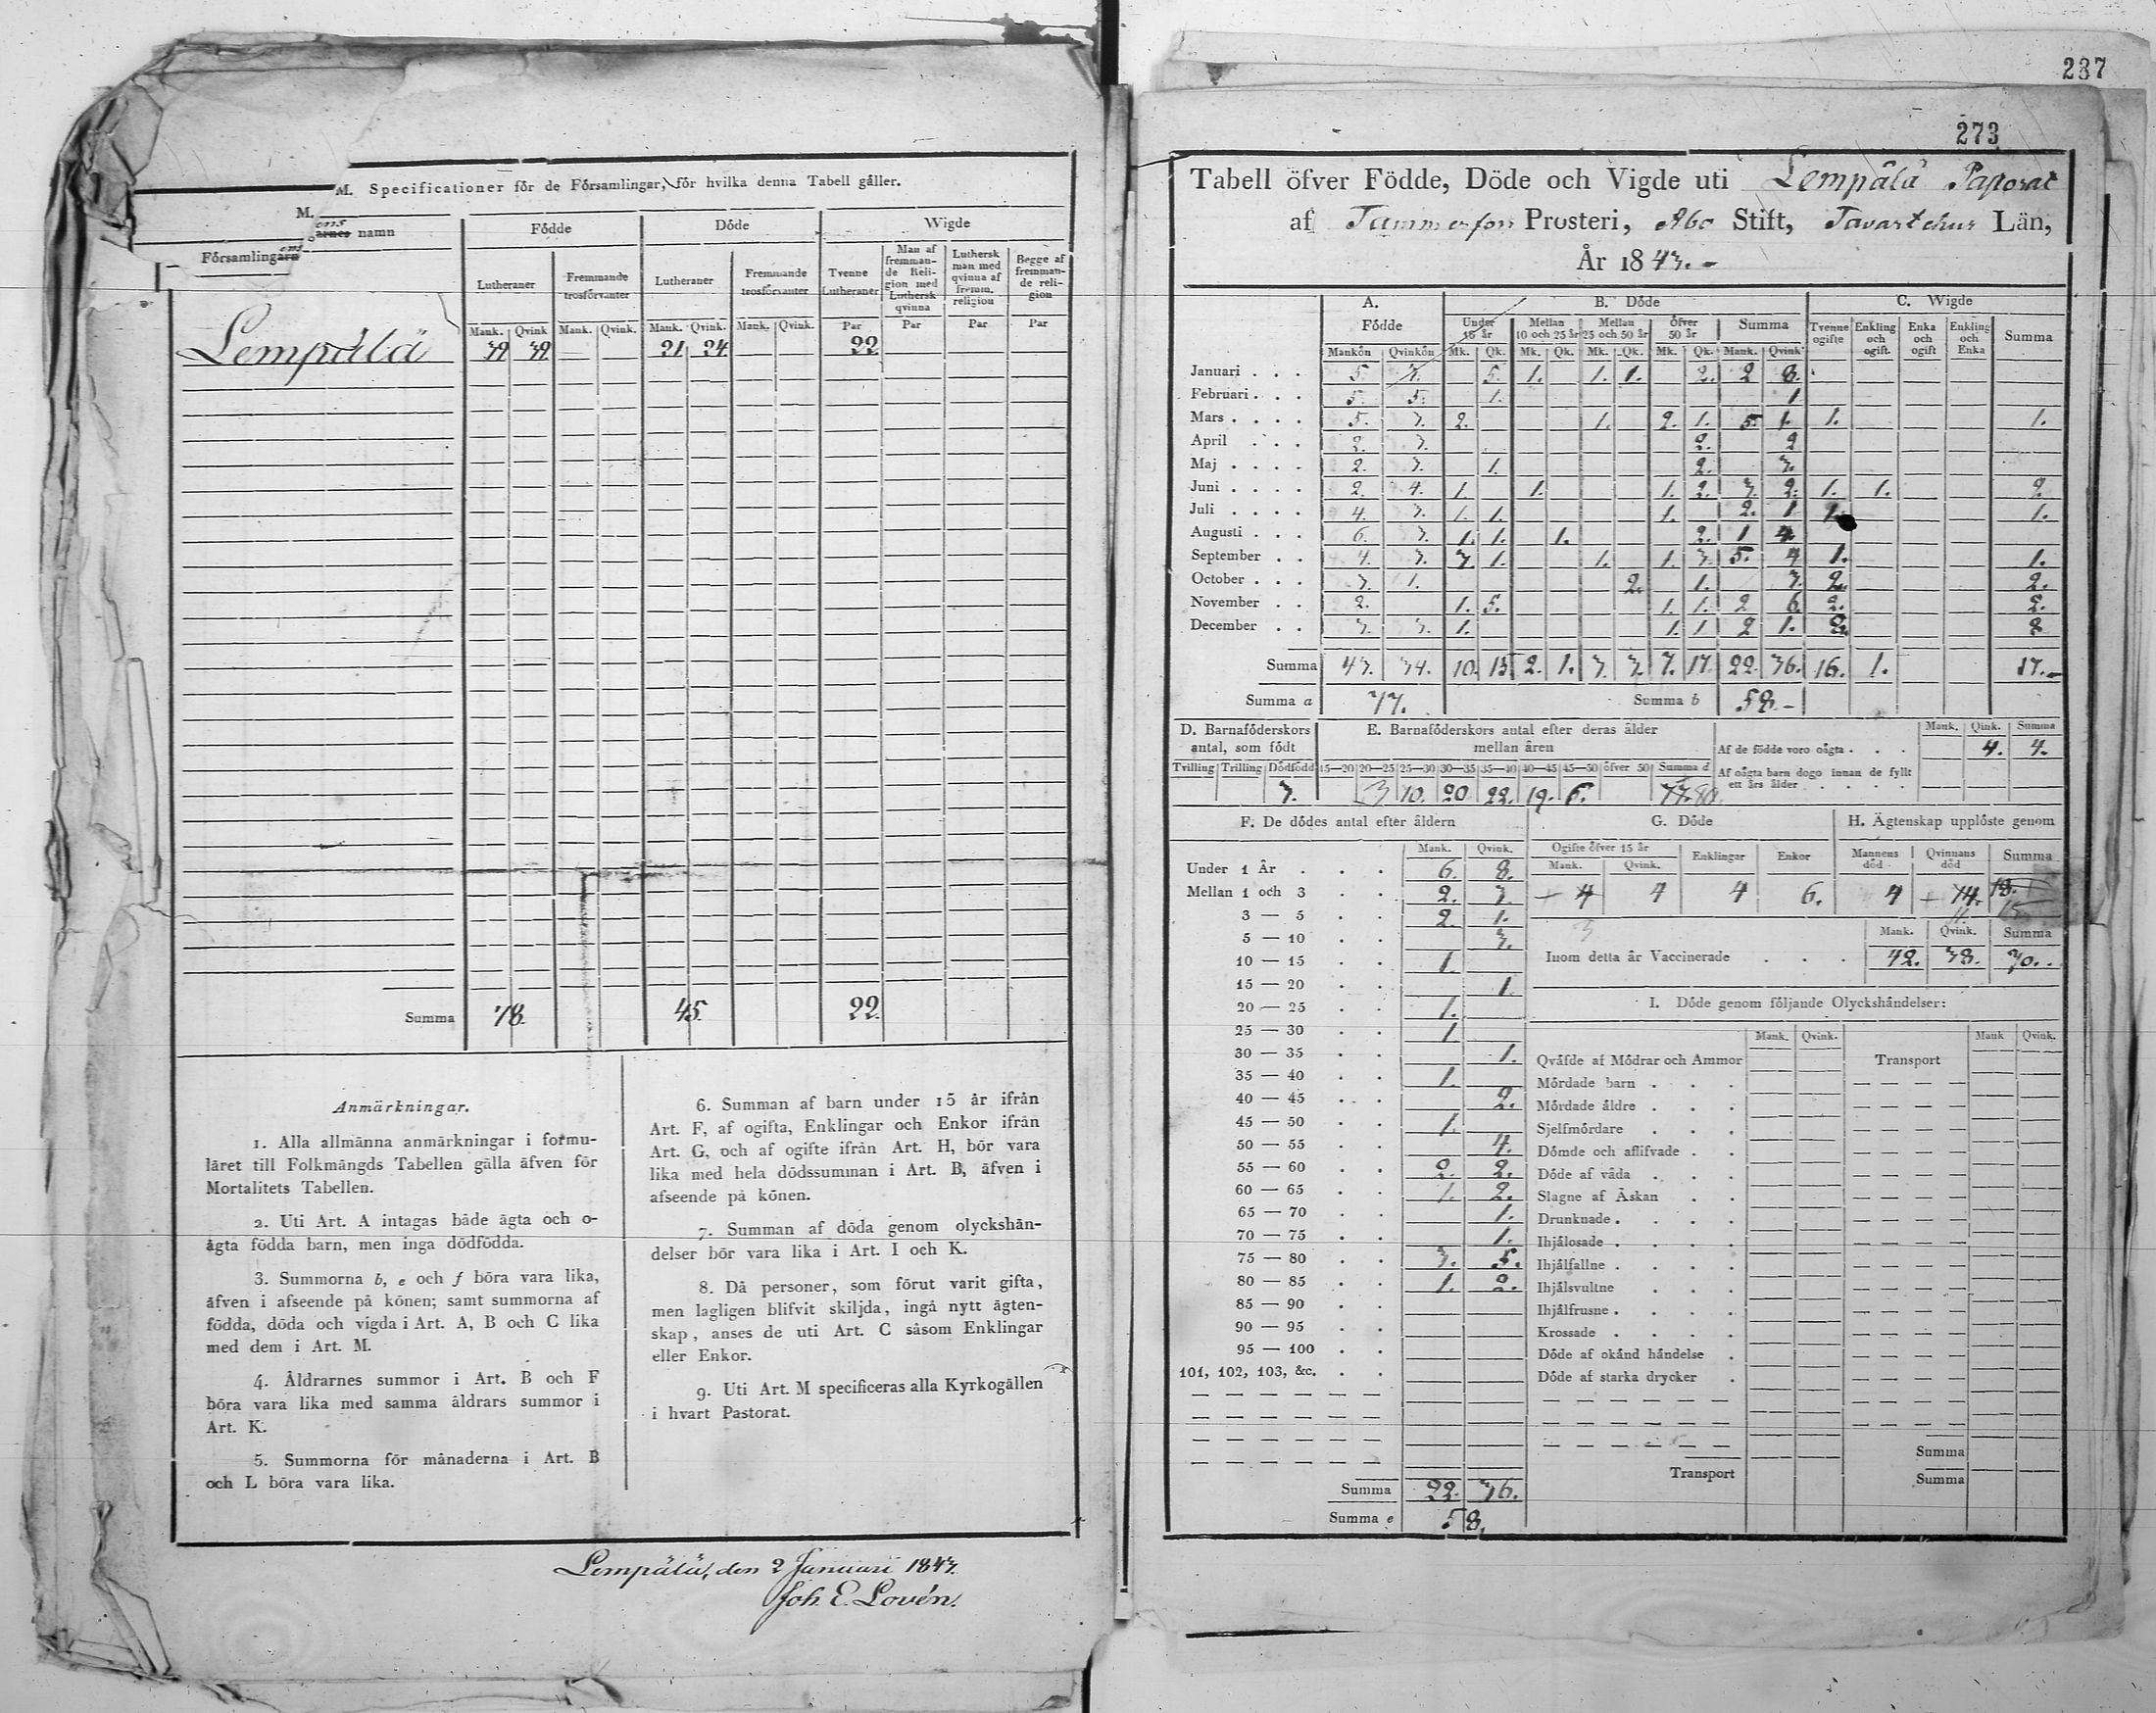 M. Specificationer för de Församlingar, för hvilka denna Tabell gäller.
M.
Församlingens namn
Födde Döde Wigde
Lutheraner Fremmande trosförvanter Lutheraner Fremmande trosförvanter Tvenne Lutheraner Man af fremmande Religion med Luthersk qvinna Luthersk man med qvinna af fremm. religion Begge af fremmande religion
Mank. Qvink Mank. Qvink. Mank. Qvink. Mank. Qvink. Par Par Par Par
Lempälä 39 39 21 24 22
Summa 78. 45. 22.
Anmärkningar.
1. Alla allmänna anmärkningar i formu-
läret till Folkmängds Tabellen gälla äfven för
Mortalitets Tabellen.
2. Uti Art. A intagas både ägta och o-
ägta födda barn, men inga dödfödda.
3. Summorna b, e och f böra vara lika,
äfven i afseende på könen; samt summorna af
födda, döda och vigda i Art. A, B och C lika
med dem i Art. M.
4. Åldrarnes summor i Art. B och F
böra vara lika med samma åldrars summor i
Art. K.
5. Summorna för månaderna i Art. B
och L böra vara lika.
6. Summan af barn under 15 år ifrån
Art. F, af ogifta, Enklingar och Enkor ifrån
Art. G, och af ogifte ifrån Art. H, bör vara
lika med hela dödssumman i Art. B, äfven i
afseende på könen.
7. Summan af döda genom olyckshän-
delser bör vara lika i Art. I och K.
8. Då personer, som förut varit gifta,
men lagligen blifvit skiljda, ingå nytt ägten-
skap, anses de uti Art. C såsom Enklingar
eller Enkor.
9. Uti Art. M specificeras alla Kyrkogällen
i hvart Pastorat.
Lempälä, den 2 Januari 1843.
Joh. E. Lovén.
237
273
Tabell öfver Födde, Döde och Vigde uti Lempälä Pastorat
af Tammerfors Prosteri, Åbo Stift, Tavastehus Län,
År 1843.
A. Födde B. Döde C. Wigde
Under 15 år Mellan 10 och 25 år Mellan 25 och 50 år Öfver 50 år Summa Tvenne ogifte Enkling och ogift. Enka och ogift Enkling och Enka Summa
Mankön Qvinkön Mk. Qk. Mk. Qk. Mk. Qk. Mk. Qk. Mank. Qvink
Januari 5. 3. 5. 1. 1. 1. 2. 2 8.
Februari 5. 5. 1. 1
Mars 5. 3. 2. 1. 2. 1. 5. 1. 1. 1.
April 2. 3. 2. 2
Maj 2. 3. 1. 2. 3.
Juni 2. 4. 1. 1. 1. 2. 3. 2. 1. 1. 2.
Juli 4. 3. 1. 1. 1. 2. 1 1. 1.
Augusti 6. 3. 1. 1. 1. 2. 1 4.
September 4. 3. 3. 1. 1. 1. 3. 5. 4 1. 1.
October 3. 1. 2. 1. 3. 2. 2.
November 2. 1. 5. 1. 1. 2 6. 2. 2.
December 3. 3. 1. 1. 1 2 1. 8. 8
Summa 43. 34. 10. 15 2. 1. 3. 3. 7. 17. 22. 36. 16. 1. 17.
Summa a 77. Summa b 58.
D. Barnaföderskors antal, som födt
Tvilling Trilling Dödfödd
3.
E. Barnaföderskors antal efter deras ålder mellan åren
15—20 20—25 25—30 30—35 35—40 40—45 45—50 öfver 50 Summa d
3 10. 20 22. 19. 6. 77. 80
Mank. Qink. Summa
Af de födde voro oägta 4. 4.
Af oägta barn dogo innan de fyllt
ett års ålder
F. De dödes antal efter åldern
Mank. Qvink.
Under 1 År 6. 8.
Mellan 1 och 3 2. 3.
3 — 5 2. 1.
5 — 10 3.
10 — 15 1.
15 — 20 1.
20 — 25 1.
25 — 30 1.
30 — 35 1.
35 — 40 1.
40 — 45 2.
45 — 50 1.
50 — 55 4.
55 — 60 2. 2.
60 — 65 1. 2.
65 — 70 1.
70 — 75 1.
75 — 80 3. 5.
80 — 85 1. 2.
85 — 90
90 — 95
95 — 100
101, 102, 103, &c.
Summa 22. 36.
Summa e 58.
G. Döde
Ogifte öfver 15 år Enklingar Enkor
Mank. Qvink.
4 4 4 6.
3
H. Ägtenskap upplöste genom
Mannens död Qvinnans död Summa
4 14. 18.
Mank. Qvink. Summa
Inom detta år Vaccinerade 42. 38. 70.
I. Döde genom följande Olyckshändelser:
Mank. Qvink. Mank Qvink.
Qväfde af Mödrar och Ammor Transport
Mördade barn
Mördade äldre
Sjelfmördare
Dömde och aflifvade
Döde af våda
Slagne af Åskan
Drunknade
Ihjälosade
Ihjälfallne
Ihjälsvultne
Ihjälfrusne
Krossade
Döde af okänd händelse
Döde af starka drycker
Summa
Transport Summa